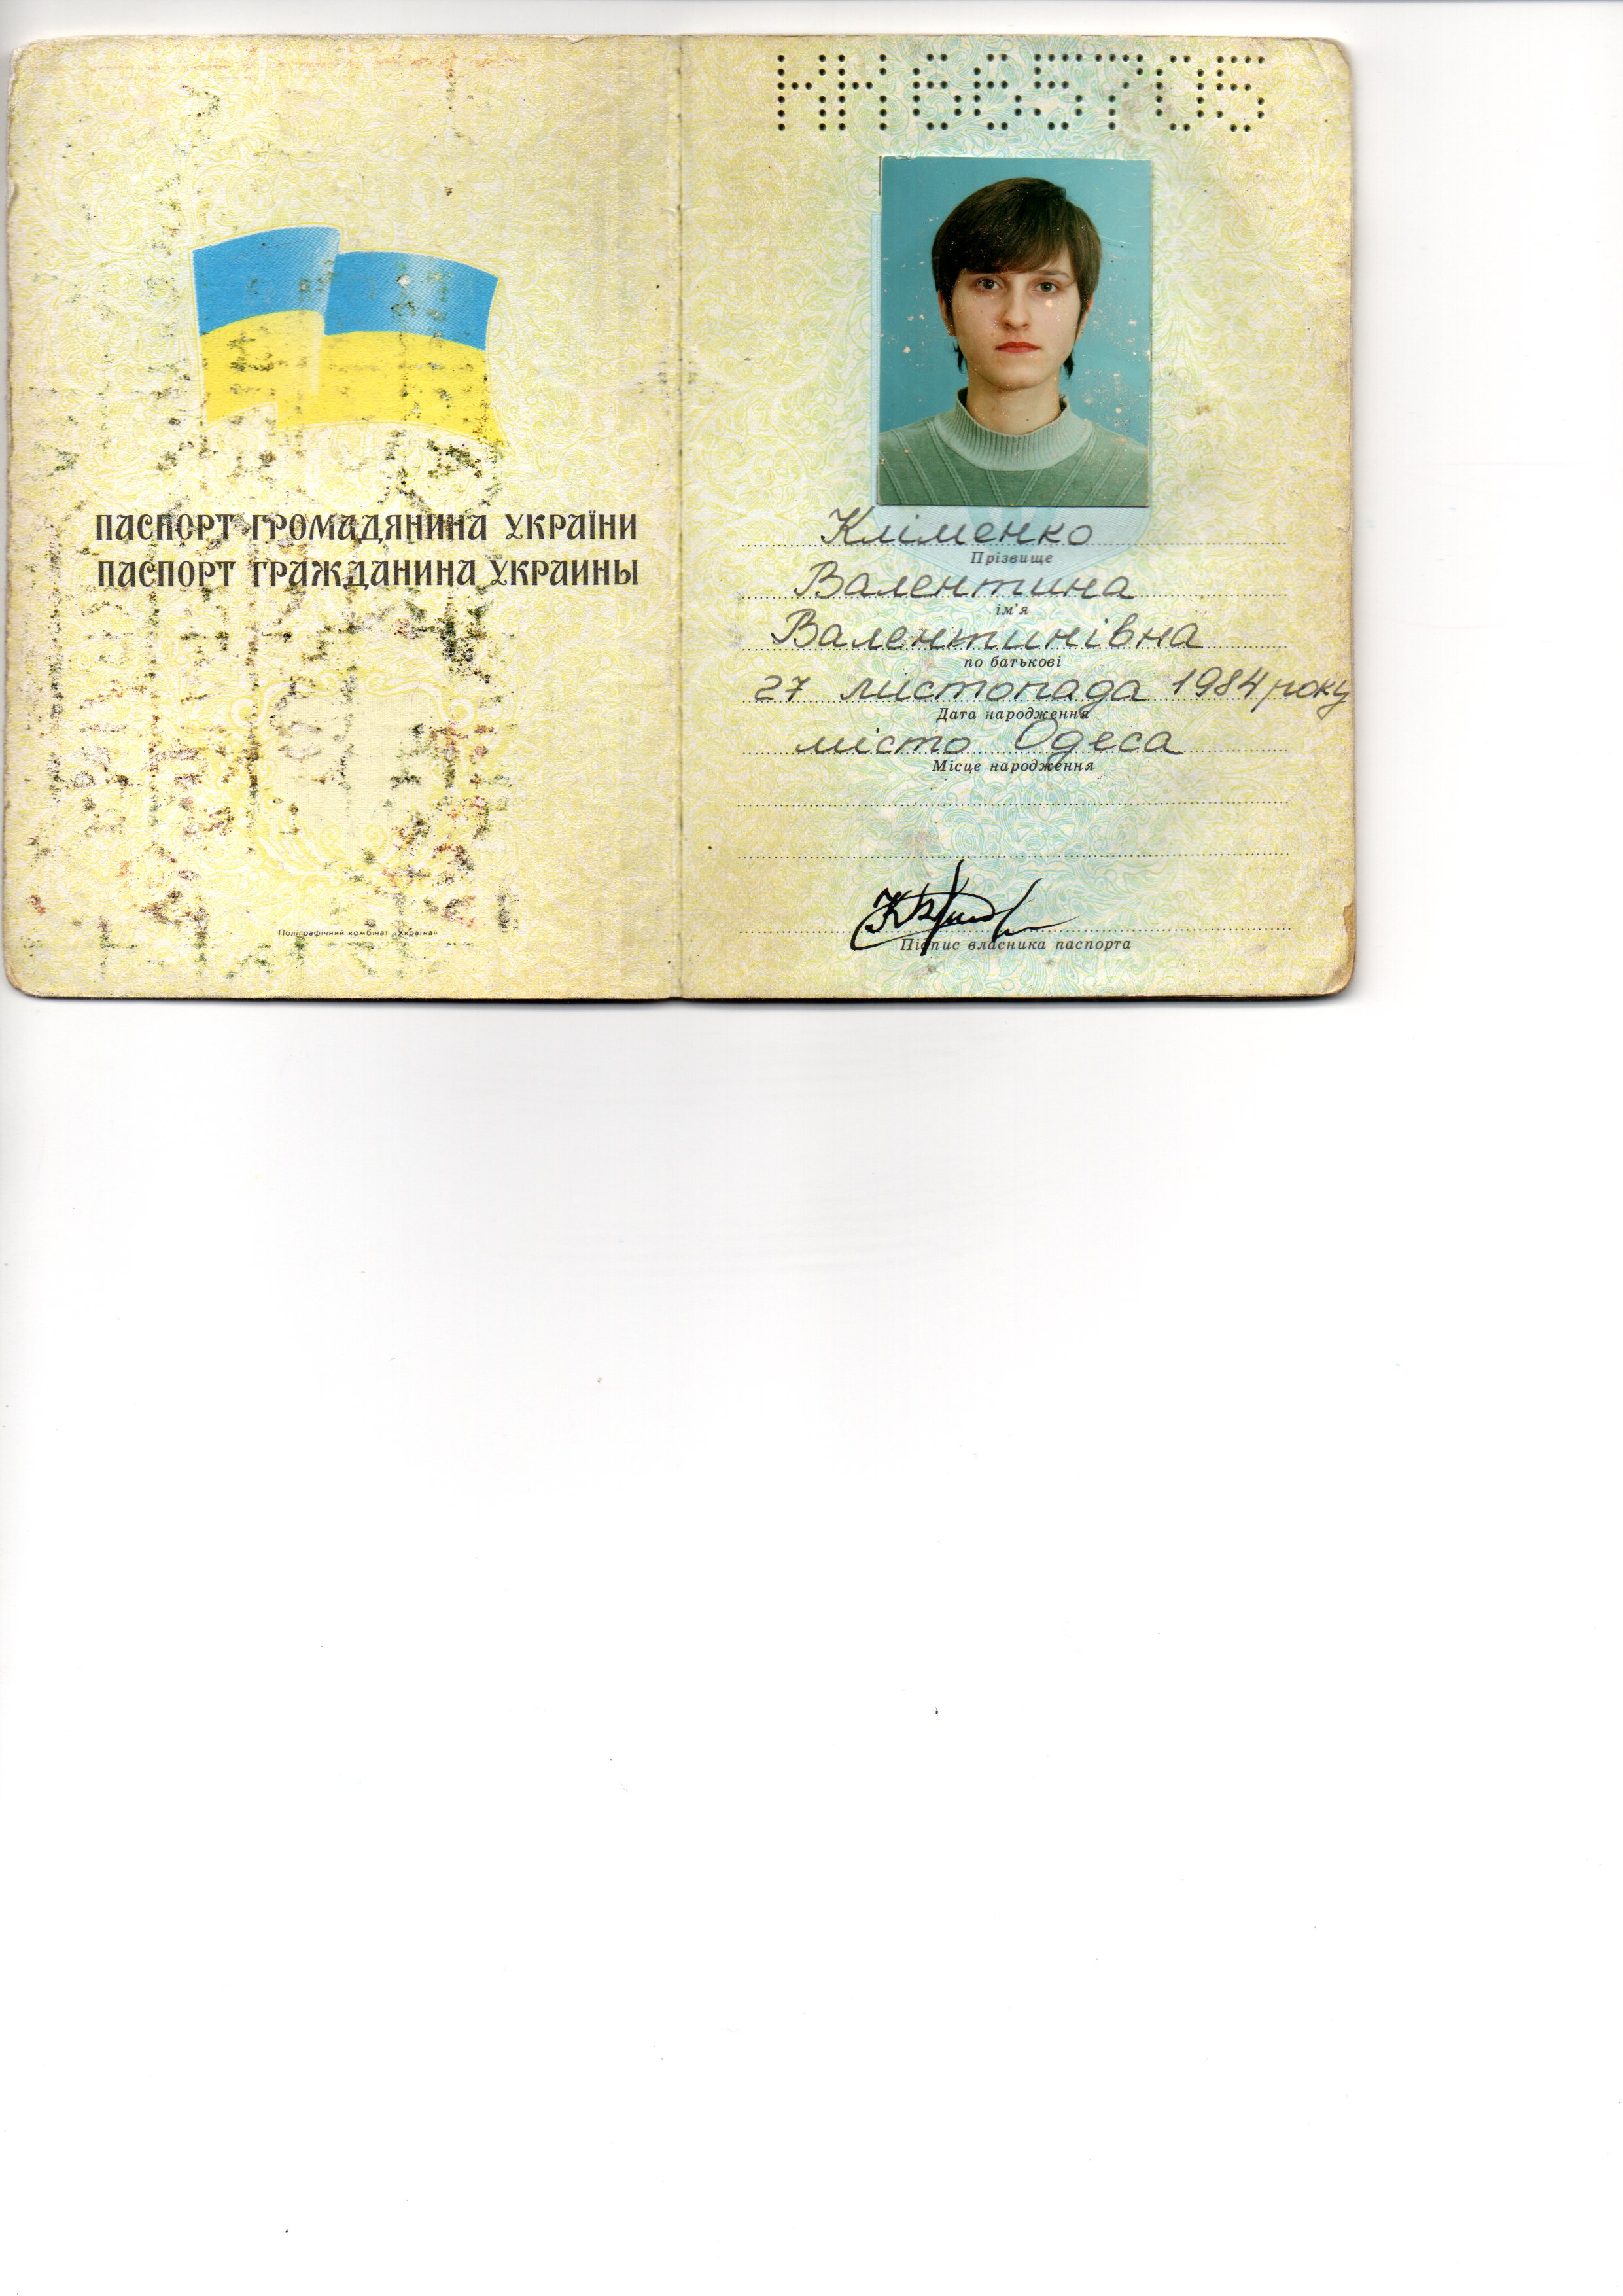 ПАСПОРТ ГРОМАДЯНИНА УКРАЇНИ
ПАСПОРТ ГРАЖДАНИНА УКРАИНЫ
Поліграфічний комбінат «Україна»
КК665705
Кліменко
Прізвище
Валентина
ім'я
Валентинівна
по батькові
27 листопада 1984 року
Дата народження
місто Одеса
Місце народження
Підпис власника паспорта